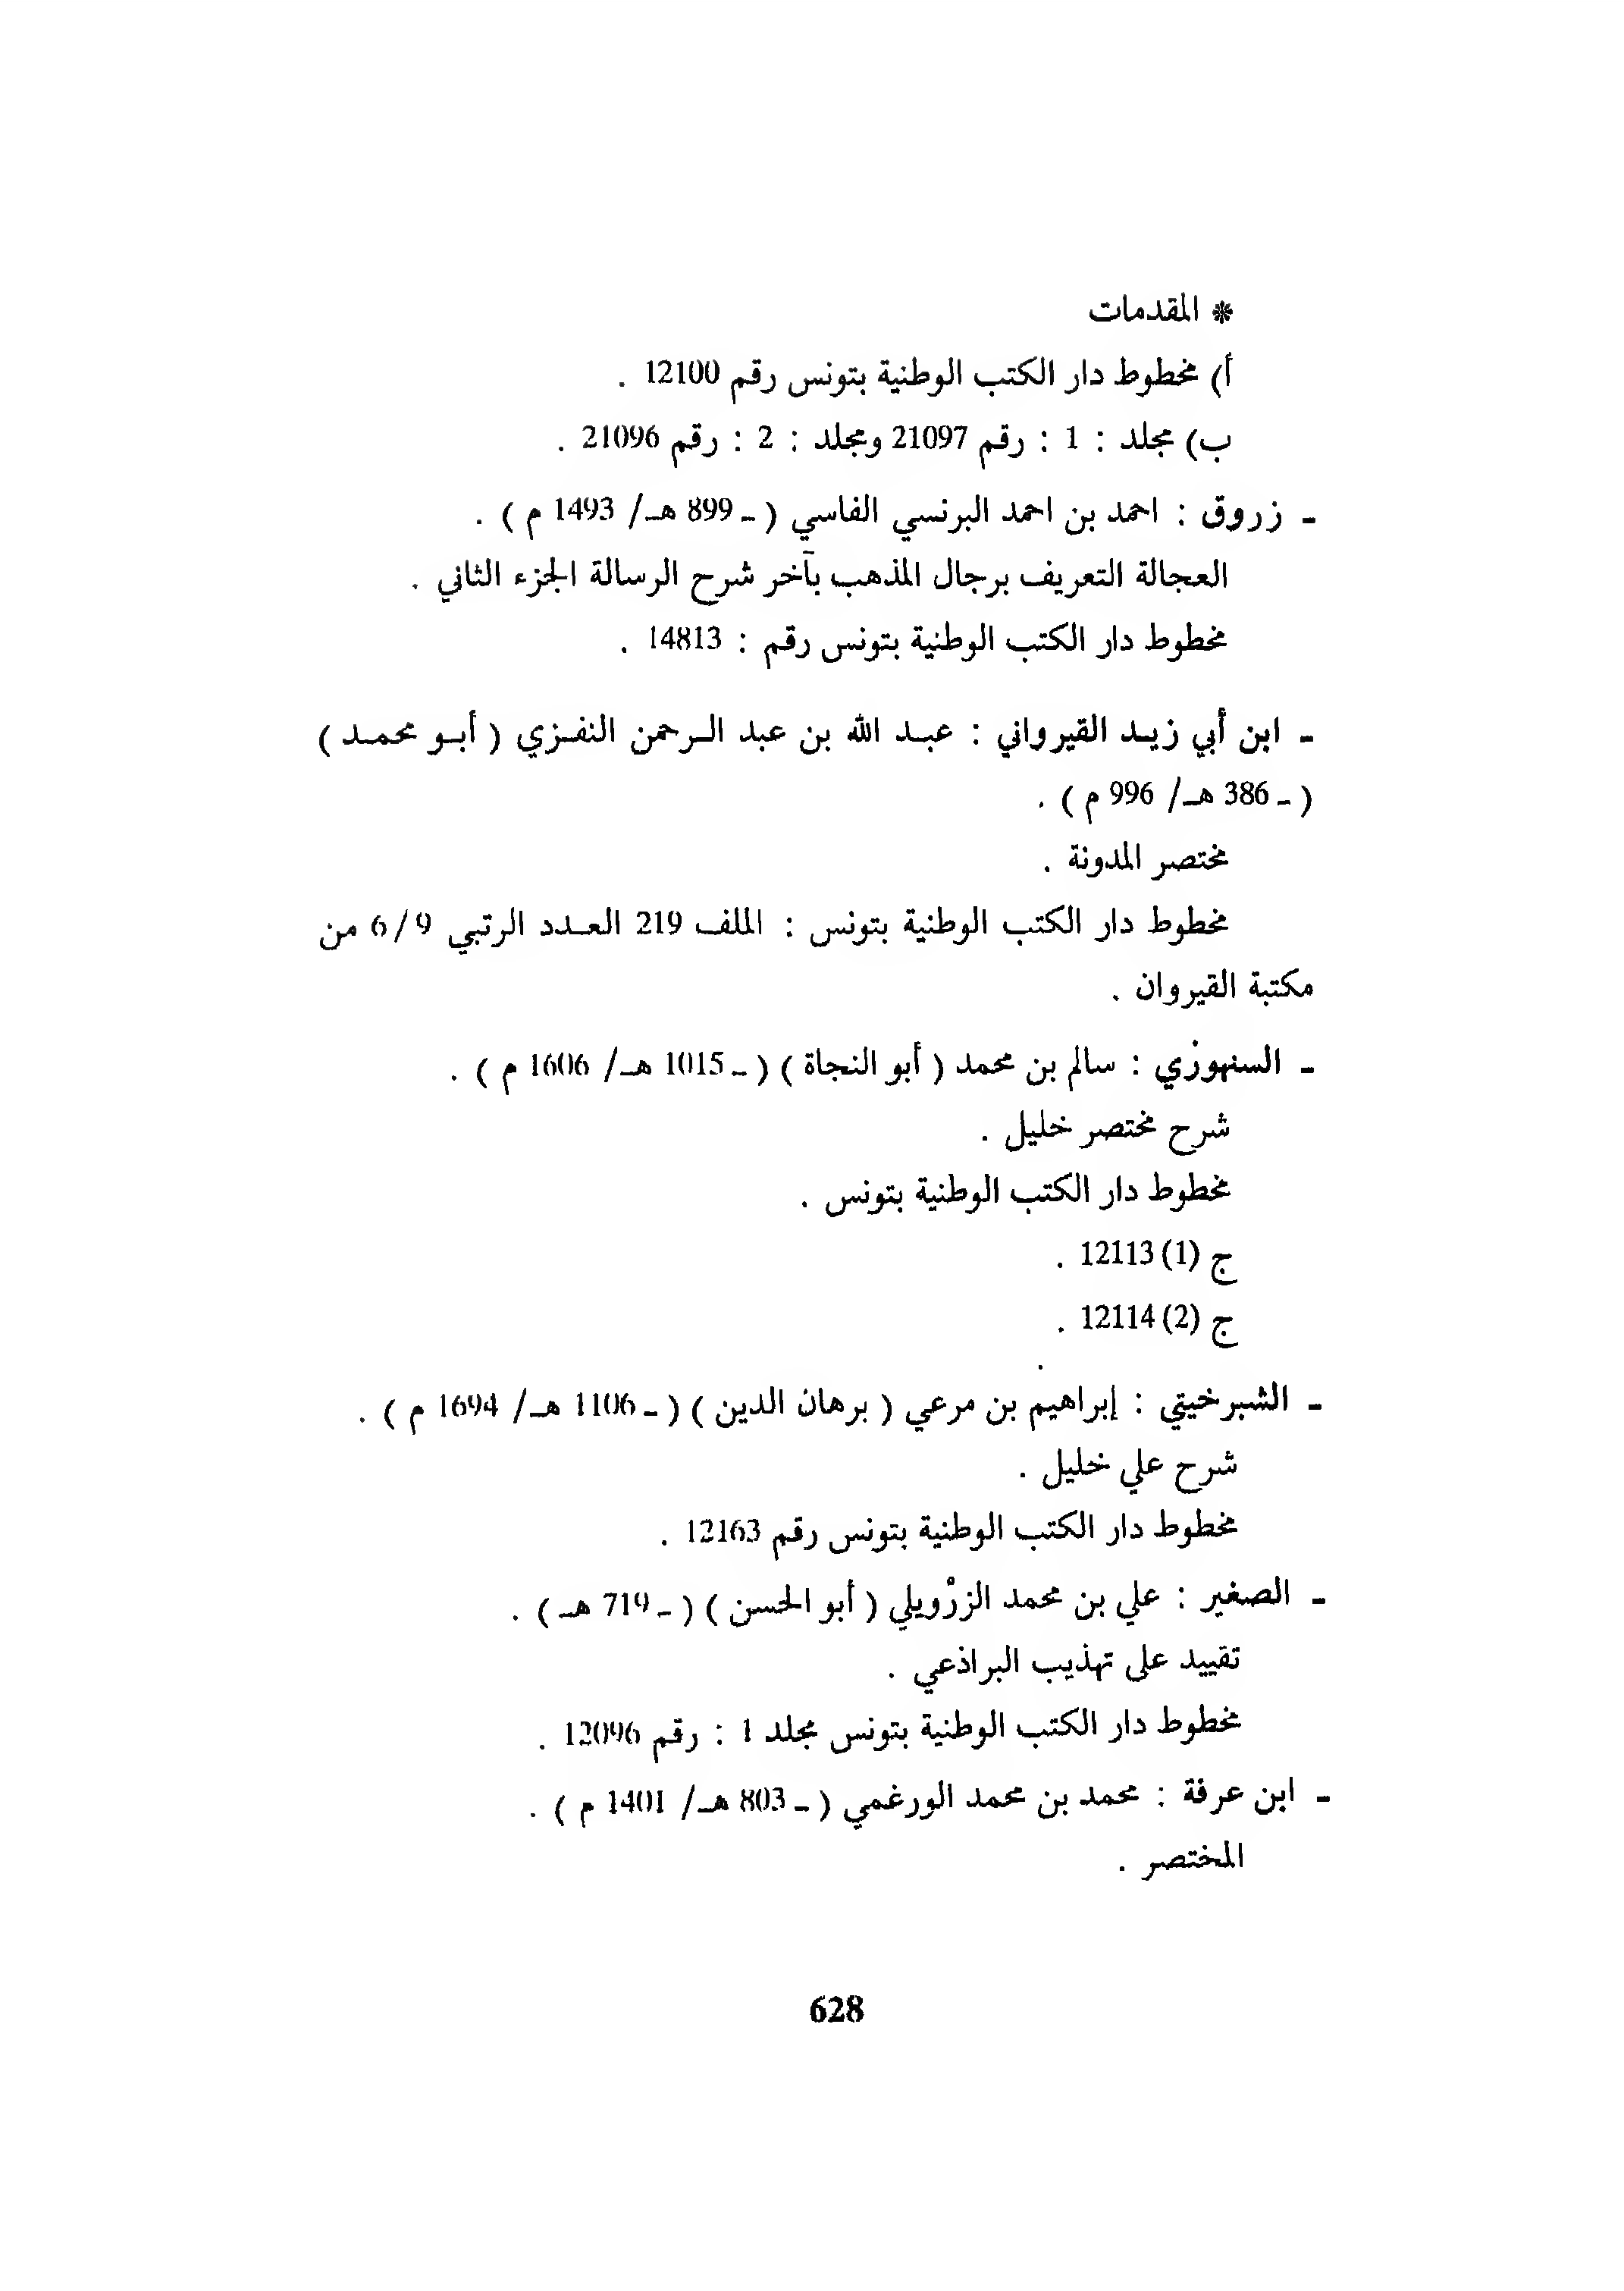 * المقدمات
أ) مخطوط دار الكتب الوطنية بتونس رقم 12100 .
ب) مجلد : 1 : رقم 21097 ومجلد : 2 : رقم 21096 .
ـ زروق : احمد بن احمد البرنسي الفاسي ( ـ 899 هـ/ 1493 م ) .
العجالة التعريف برجال المذهب بآخر شرح الرسالة الجزء الثاني .
مخطوط دار الكتب الوطنية بتونس رقم : 14813 .
ـ ابن أبي زيـد القيرواني : عبـد الله بن عبد الـرحمن النفـزي ( أبـو محمـد )
( ـ 386 هـ/ 996 م ) .
مختصر المدونة .
مخطوط دار الكتب الوطنية بتونس : الملف 219 العـدد الرتبي 9/6 من
مكتبة القيروان .
ـ السنهوزي : سالم بن محمد ( أبو النجاة ) ( ـ 1015 هـ/ 1606 م ) .
شرح مختصر خليل .
مخطوط دار الكتب الوطنية بتونس .
ج (1) 12113 .
ج (2) 12114 .
ـ الشبرخيتي : إبراهيم بن مرعي ( برهان الدين ) ( ـ 1106 هـ/ 1694 م ) .
شرح علي خليل .
مخطوط دار الكتب الوطنية بتونس رقم 12163 .
ـ الصغير : علي بن محمد الزرْويلي ( أبو الحسن ) ( ـ 719 هـ ) .
تقييد على تهذيب البراذعي .
مخطوط دار الكتب الوطنية بتونس مجلد 1 : رقم 12096 .
ـ ابن عرفة : محمد بن محمد الورغمي ( ـ 803 هـ/ 1401 م ) .
المختصر .
628